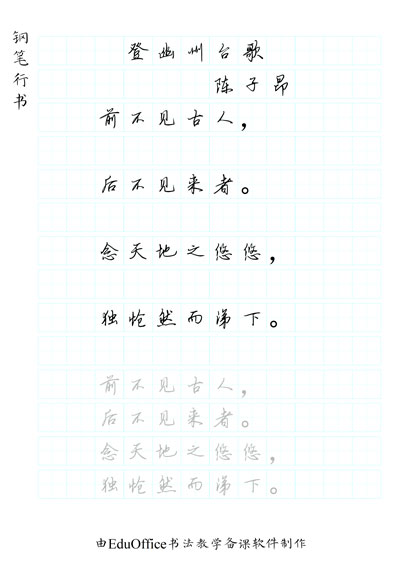 钢笔行书
登幽州台歌
陈子昂
前不见古人，
后不见来者。
念天地之悠悠，
独怆然而涕下。
前不见古人，
后不见来者。
念天地之悠悠，
独怆然而涕下。
由EduOffice书法教学备课软件制作